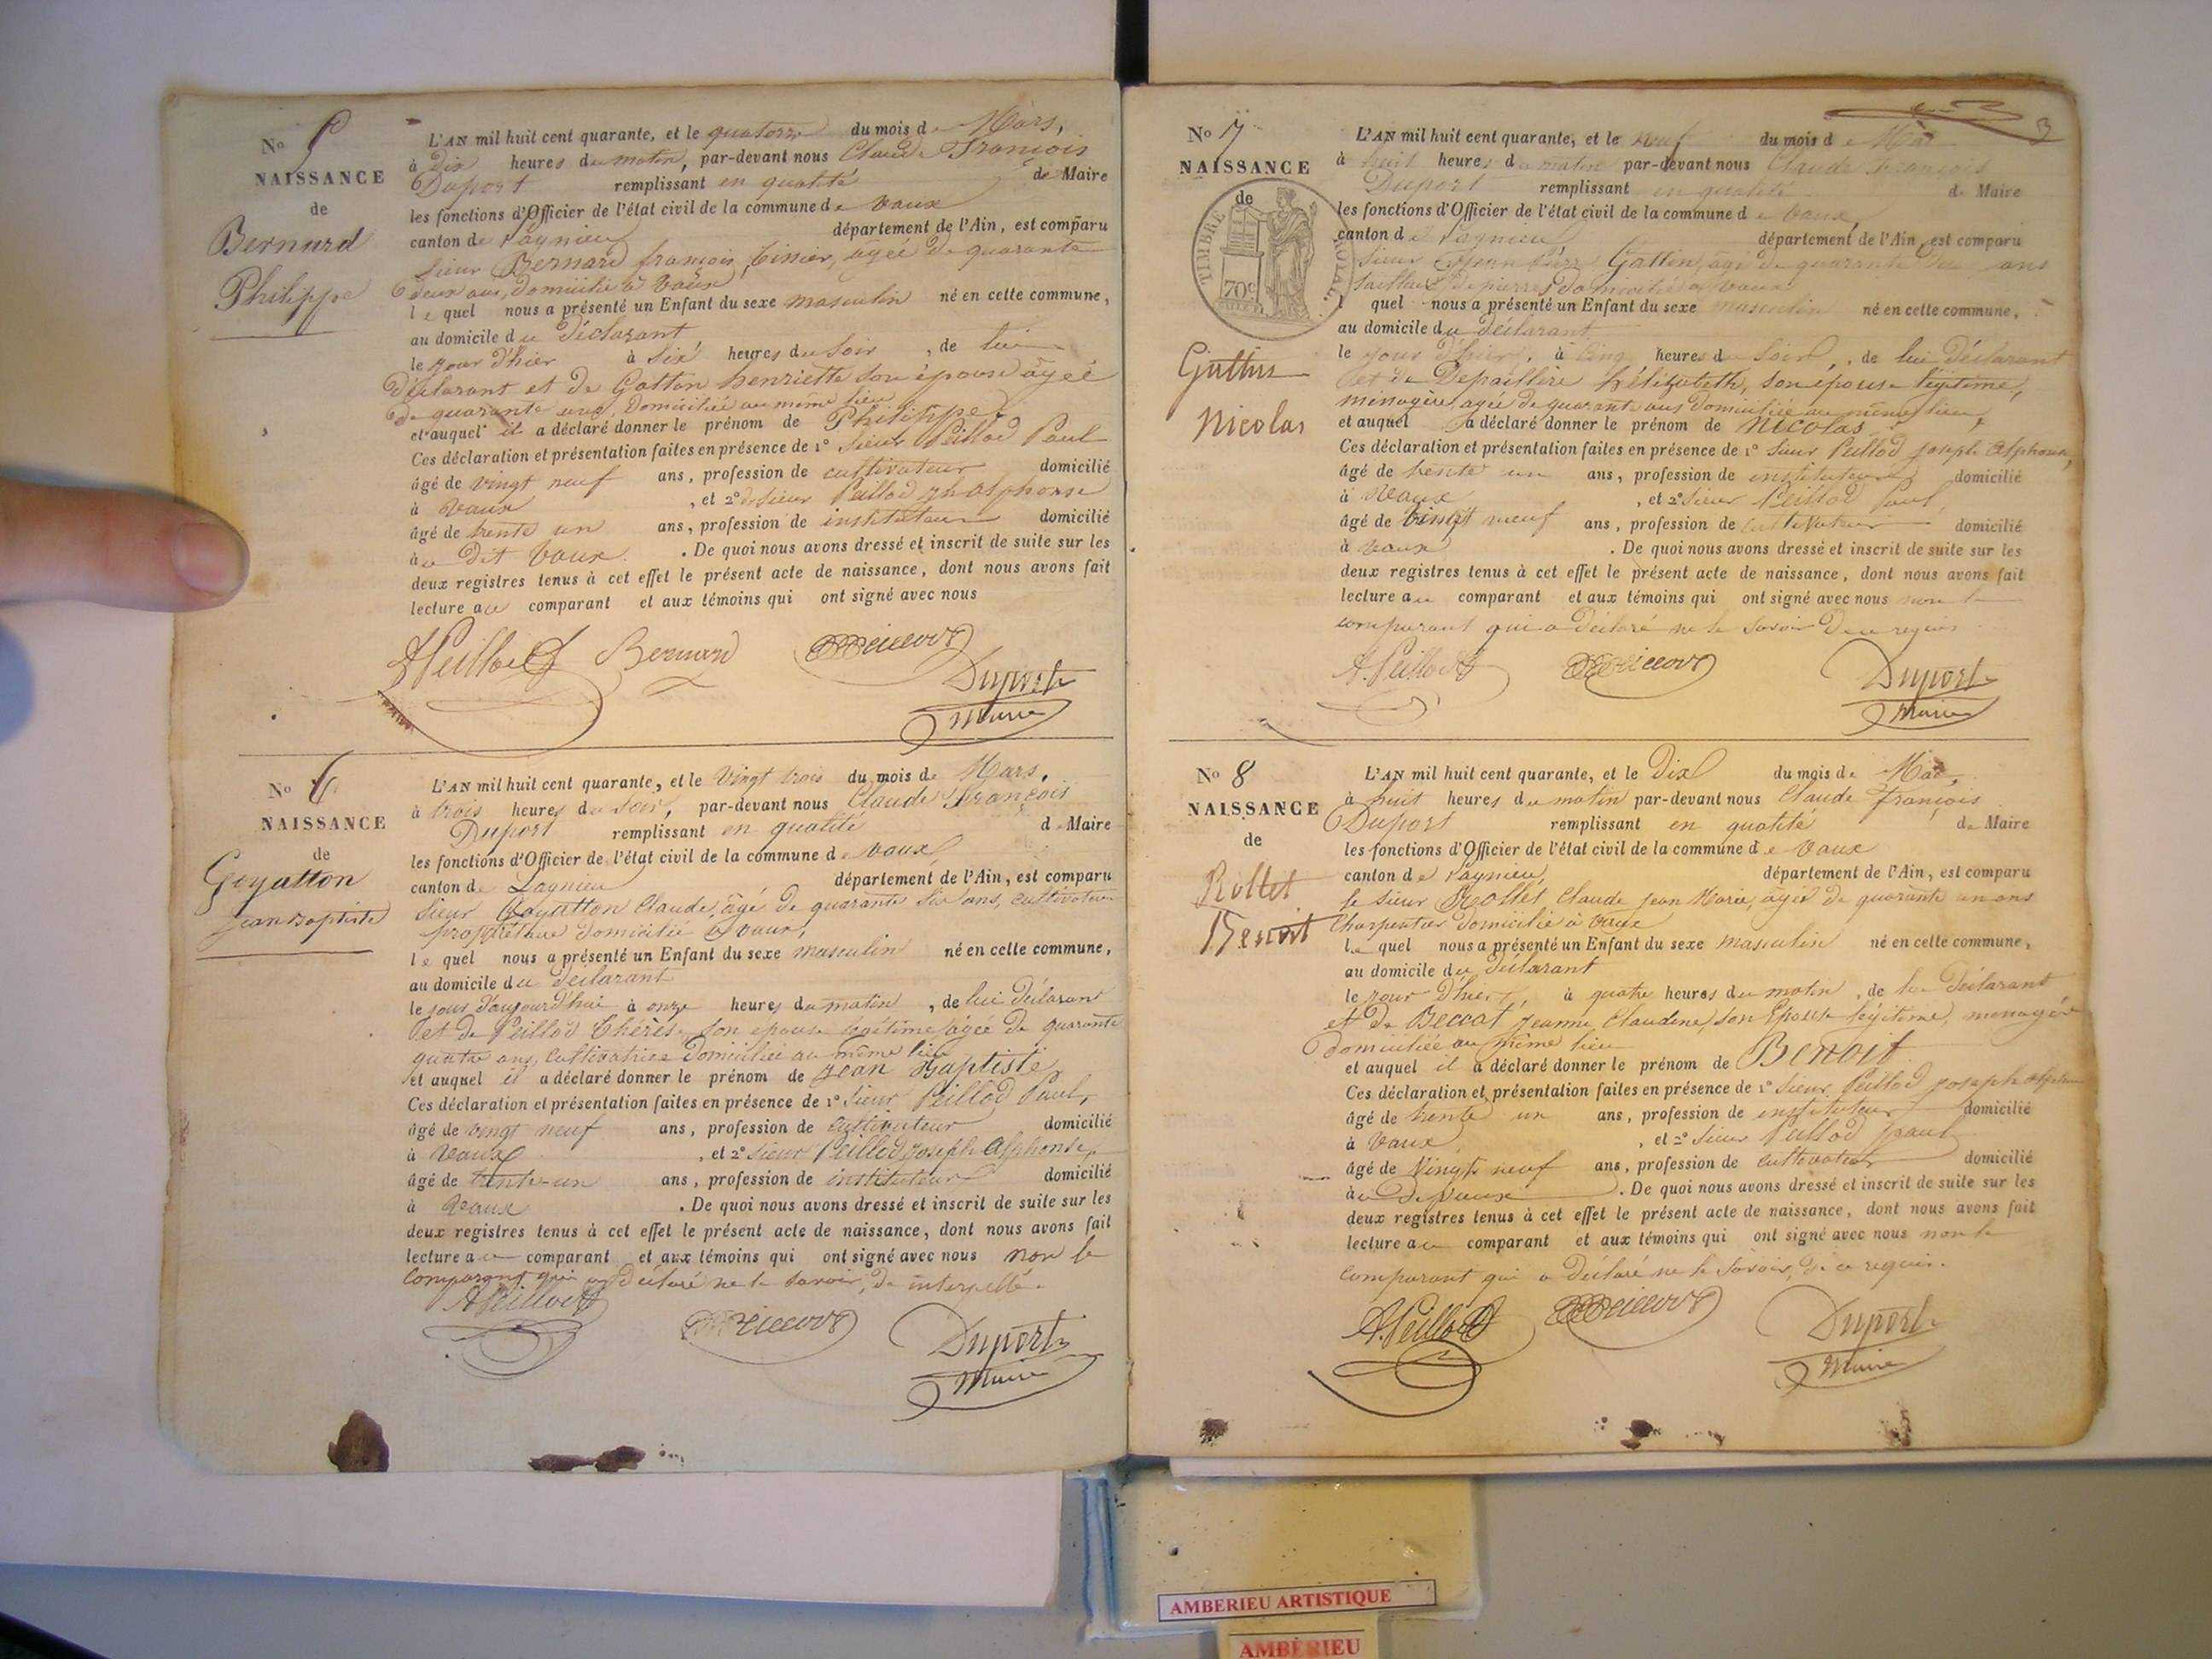 No 5
NAISSANCE
de
Bernard
Philippe
L'AN mil huit cent quarante, et le quatorze du mois de Mars,
à dix heures du matin, par-devant nous Claude François
Duport remplissant en qualité de Maire
les fonctions d'Officier de l'état civil de la commune de Vaux
canton de Lagnieu département de l'Ain, est comparu
sieur Bernard françois, âgée de quarante
deux ans, domicilié à Vaux
lequel nous a présenté un Enfant du sexe masculin né en cette commune,
au domicile du déclarant
le jour d'hier à six heures du soir, de lui
déclarant et de Gatton henriette son épouse âgée
de quarante ans, domiciliée au même lieu
et auquel il a déclaré donner le prénom de Philippe,
Ces déclaration et présentation faites en présence de 1° sieur Peillod Paul
âgé de vingt neuf ans, profession de cultivateur domicilié
à Vaux, et 2° sieur Peillod jh alphonse
âgé de trente un ans, profession de instituteur domicilié
au dit Vaux. De quoi nous avons dressé et inscrit de suite sur les
deux registres tenus à cet effet le présent acte de naissance, dont nous avons fait
lecture au comparant et aux témoins qui ont signé avec nous
APeillod Bernard Duport
Maire
No 6
NAISSANCE
de
Goyatton
jean Baptiste
L'AN mil huit cent quarante, et le vingt trois du mois de Mars,
à trois heures du soir, par-devant nous Claude François
Duport remplissant en qualité de Maire
les fonctions d'Officier de l'état civil de la commune de Vaux
canton de Lagnieu département de l'Ain, est comparu
sieur Goyatton Claude, âgé de quarante six ans, cultivateur
propriétaire domicilié à Vaux,
lequel nous a présenté un Enfant du sexe masculin né en cette commune,
au domicile du déclarant
le jour d'aujourd'hui à onze heures du matin, de lui déclarant
et de Peillod Thérèse, son epouse légitime, âgée de quarante
quatre ans, cultivatrice domiciliée au même lieu
et auquel il a déclaré donner le prénom de jean Baptiste
Ces déclaration et présentation faites en présence de 1° sieur Peillod Paul,
âgé de vingt neuf ans, profession de cultivateur domicilié
à Vaux, et 2° sieur Peillod joseph alphonse,
âgé de trente-un ans, profession de instituteur domicilié
à Vaux. De quoi nous avons dressé et inscrit de suite sur les
deux registres tenus à cet effet le présent acte de naissance, dont nous avons fait
lecture au comparant et aux témoins qui ont signé avec nous non le
comparant qui a déclaré ne le savoir, de interpellé.
APeillod Duport
Maire
3
No 7
NAISSANCE
de
TIMBRE ROYAL
70c
Gattin
Nicolas
L'AN mil huit cent quarante, et le neuf du mois de Mai
à huit heures du matin par-devant nous Claude françois
Duport remplissant en qualité de Maire
les fonctions d'Officier de l'état civil de la commune de Vaux,
canton de Lagnieu département de l'Ain, est comparu
sieur Gattin, âgé de quarante ans
tailleur de pierres domicilié à Vaux
lequel nous a présenté un Enfant du sexe masculin né en cette commune,
au domicile du déclarant
le jour d'hier, à cinq heures du soir, de lui déclarant
et de Depaillere hélizabeth, son épouse légitime,
menagère, agée de quarante ans domiciliée au même lieu,
et auquel a déclaré donner le prénom de Nicolas
Ces déclaration et présentation faites en présence de 1° sieur Peillod joseph alphonse,
âgé de trente un ans, profession de instituteur domicilié
à Vaux, et 2° sieur Peillod Paul,
âgé de vingt neuf ans, profession de cultivateur domicilié
à Vaux. De quoi nous avons dressé et inscrit de suite sur les
deux registres tenus à cet effet le présent acte de naissance, dont nous avons fait
lecture au comparant et aux témoins qui ont signé avec nous non le
comparant qui a déclaré ne le savoir de ce requis
A.Peillod Duport
Maire
No 8
NAISSANCE
de
Rollet
Benoit
L'AN mil huit cent quarante, et le Dix du mois de Mai,
à huit heures du matin par-devant nous Claude françois
Duport remplissant en qualité de Maire
les fonctions d'Officier de l'état civil de la commune de Vaux
canton de Lagnieu, département de l'Ain, est comparu
le sieur Rollet, Claude jean Marie, âgé de quarante un ans
Charpentier domicilié à Vaux
lequel nous a présenté un Enfant du sexe masculin né en cette commune,
au domicile du déclarant
le jour d'hier, à quatre heures du matin, de lui déclarant
et de Beccat jeanne Claudine, son Epouse légitime, menagère
domiciliée au même lieu
et auquel il a déclaré donner le prénom de Benoit
Ces déclaration et présentation faites en présence de 1° sieur Peillod joseph alphonse
âgé de trente un ans, profession de instituteur domicilié
à Vaux, et 2° sieur Peillod paul
âgé de vingt neuf ans, profession de cultivateur domicilié
au dit Vaux. De quoi nous avons dressé et inscrit de suite sur les
deux registres tenus à cet effet le présent acte de naissance, dont nous avons fait
lecture au comparant et aux témoins qui ont signé avec nous non le
comparant qui a déclaré ne le savoir, de ce requis.
A.Peillod Duport
Maire
AMBERIEU ARTISTIQUE
AMBÉRIEU